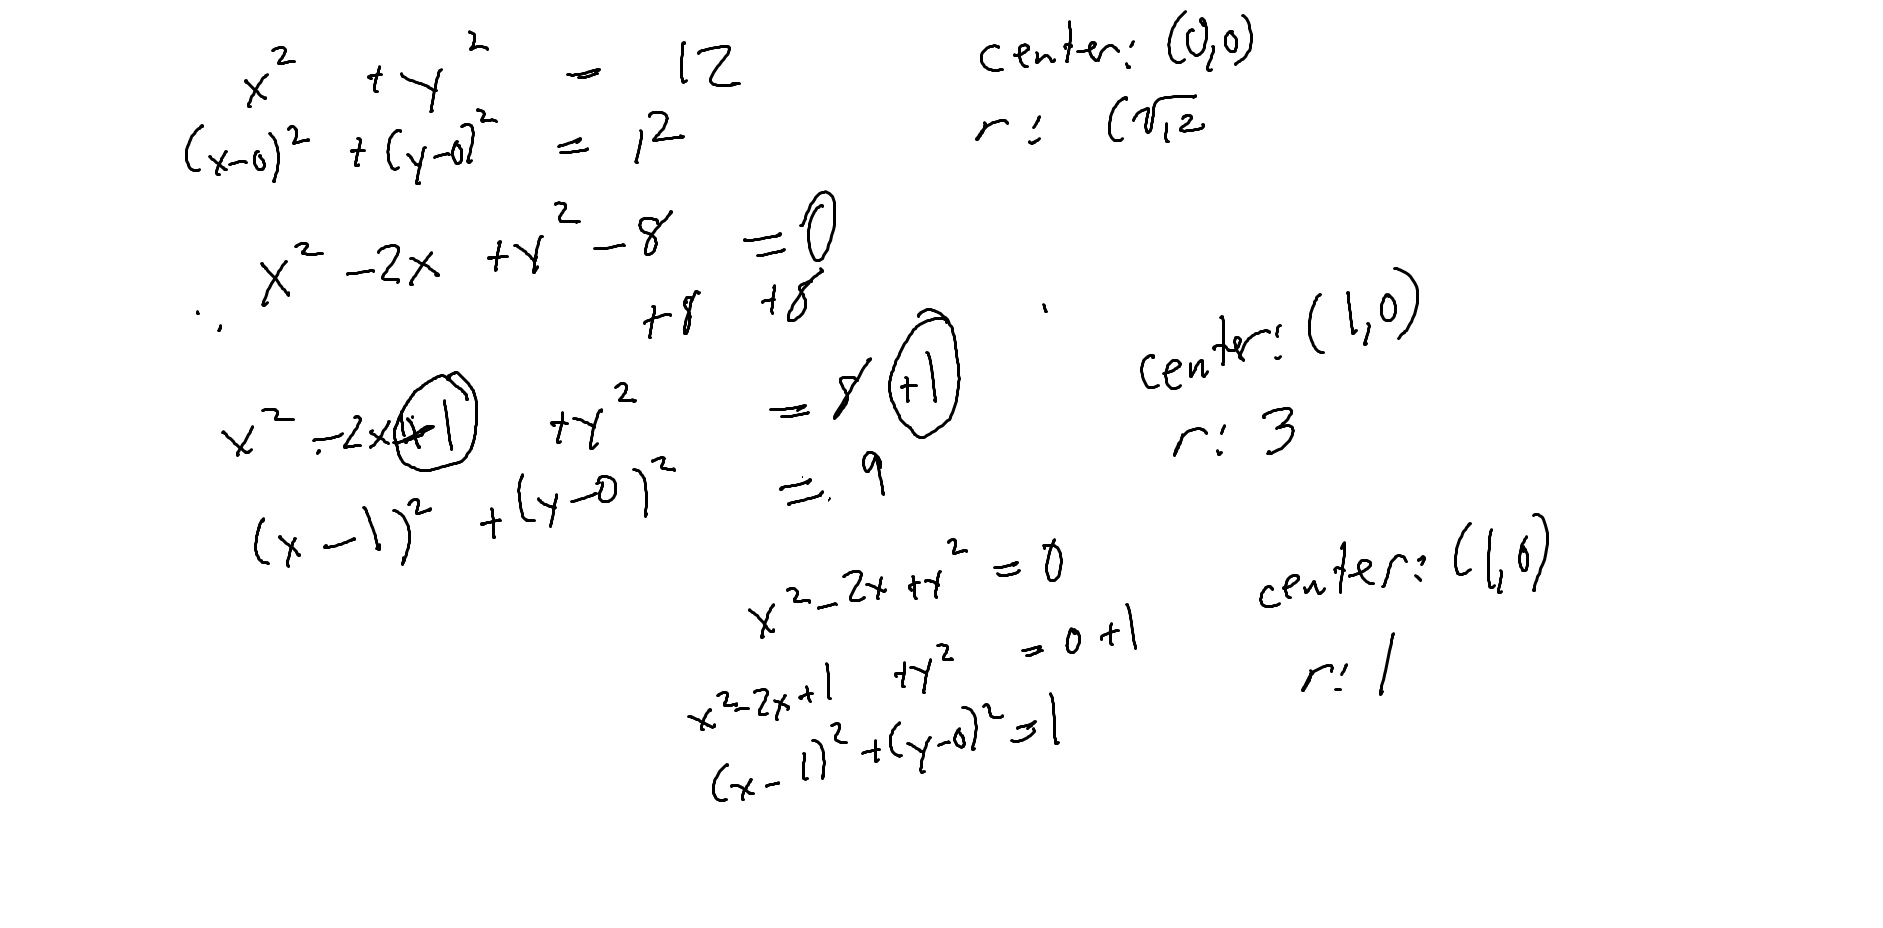 x² + y² = 12
(x-0)² + (y-0)² = 12
center: (0,0)
r: (√12
x² - 2x + y² - 8 = 0
+8 +8
x² - 2x +1 + y² = 8 +1
(x-1)² + (y-0)² = 9
center: (1,0)
r: 3
x² - 2x + y² = 0
x² - 2x + 1 + y² = 0 + 1
(x-1)² + (y-0)² = 1
center: (1,0)
r: 1